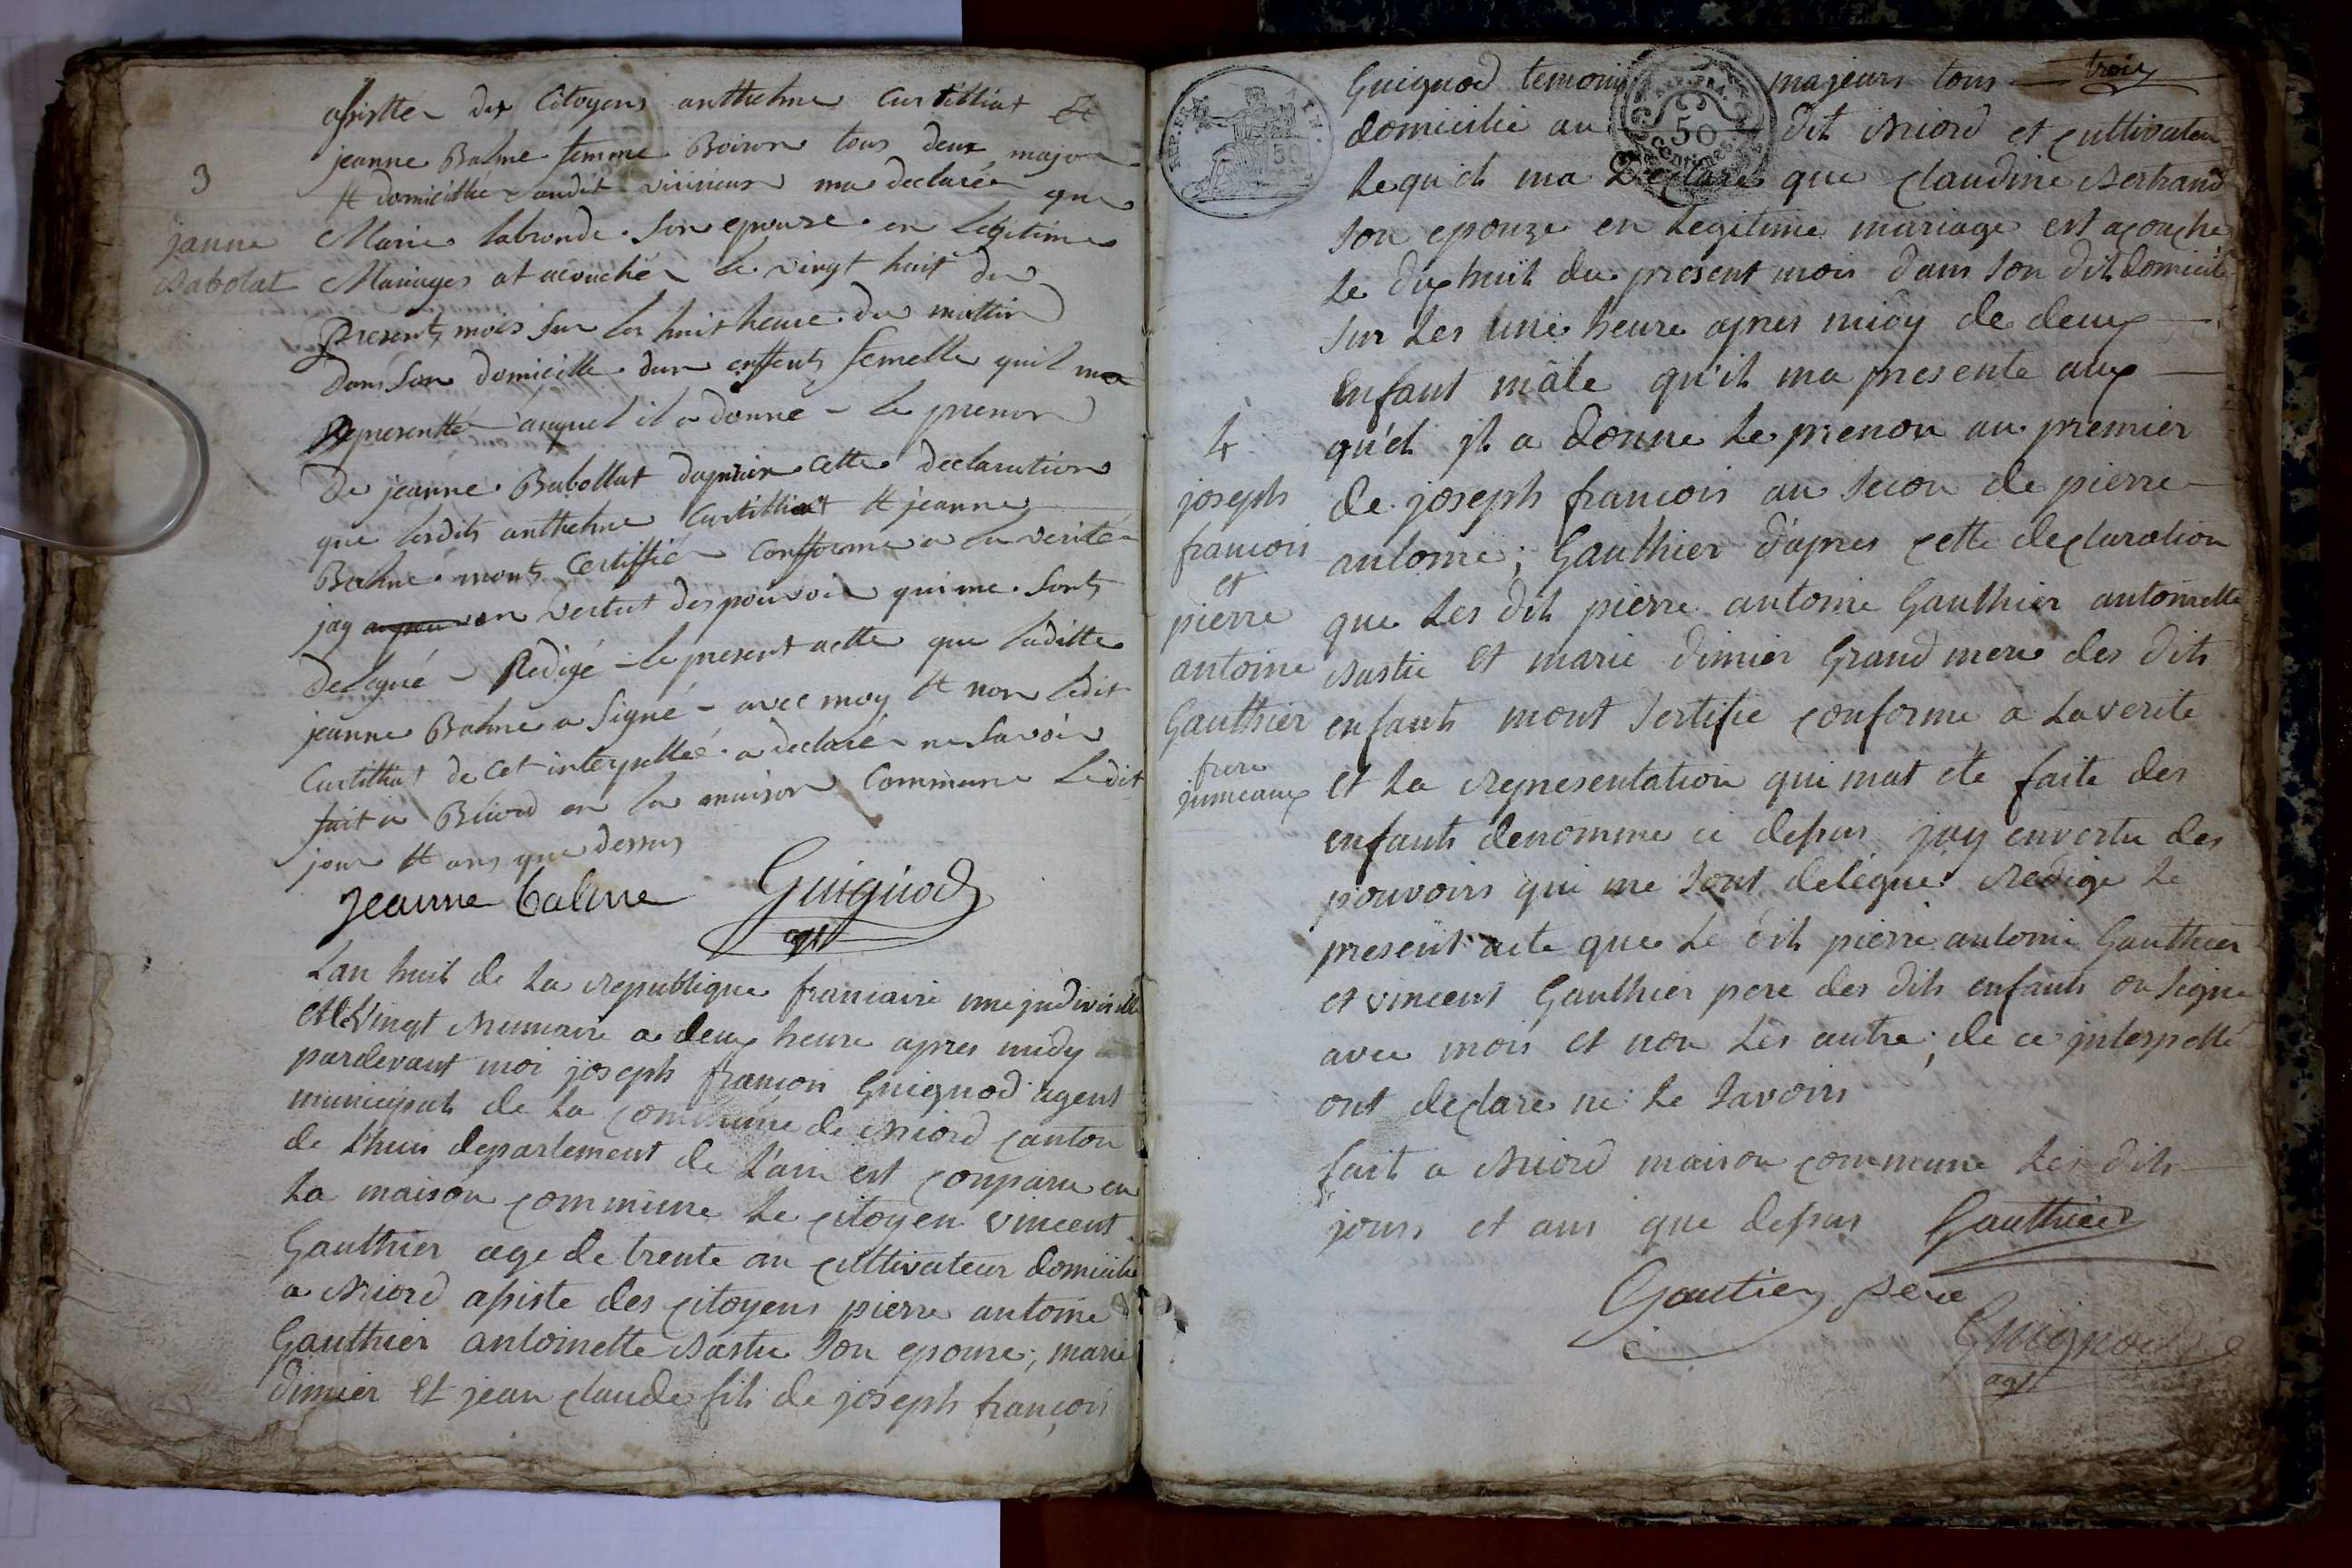 assistée des Citoyens anthelme Curtilliat Et
jeanne Balme femme Boiron tous deux majeurs
3
Et domicillié audit ma declaré que
Marie labronde son epouze en legitime
janne
Babolat
Mariages at acouché le vingt huit du
presents mois sur les huit heure du mattin
Dans son domicille dun enffents femelle quil ma
Representté auquel il a donné le prenom
De jeanne Babollat dapprais cette declaration
que lesdits anthelme Curtilliat Et jeanne
Balme monts Certiffié Confforme a la verité
jay en vertut des pouvoir qui me sonts
Delegué Redigé le present actte que laditte
jeanne Balme a signé avec moy Et non ledit
Curtilliat de cet interpellée a declaré ne savoir
fait a Briord en la maison Commune ledit
jour Et ans que dessus
jeanne balme Guignod
agt
Lan huit de la republique francaire une judivisible
et le vingt Brumaire a deux heure apres midy
pardevant moi joseph francois Guignod agent
municipal de la commune de Briord canton
de Lhuis departement de L'ain est conparu en
La maison commune le citoyen vincent
Gauthier age de trente an cultivateur domicilie
a Briord assiste des citoyens pierre antoine
Gauthier antoinette Bastie son epouse, marie
dimier Et jean claude fils de joseph francois
Guignod temoins majeurs tous trois
domicilie au dit Briord et cultivateur
REP. FRA.
50
centimes
Lequ'el ma Declare que claudine Bertrand
son epouze en Legitime mariage est acouche
le dixhuit du present mois dans son dit domicile
sur les une heure apres midy de deux
enfant mâle qu'il ma presente aux
4
qu'el jl a donne le prenon au premier
joseph
francois
et
pierre
antoine
Gauthier
frere
jumeaux
de joseph francois au secon de pierre
antoine; Gauthier d'apres cette declaration
que les dit pierre antoine Gauthier antoinette
Bastie et marie dimier Grand mere des dits
enfants mont sertifie conforme a La verite
et La representation qui mat ete faite des
enfants denomme ci dessus jay en vertu des
pouvoirs qui me sont delegue Redige Le
present acte que Le dit pierre antoine Gauthier
et vincent Gauthier pere des dits enfants on signe
avec mois et non Les autre, de ce jnterpelle
ont declare ne Le savoirs
fait a Briord maison commune Les dits
jours et ans que dessus Gauthier
Gautier pere
Guignod
agt